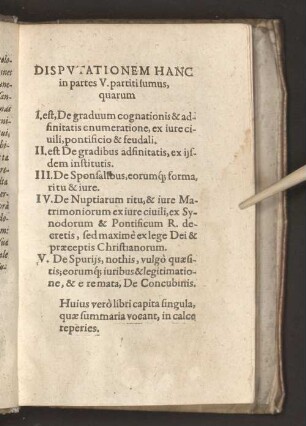 DISPVTATIONEM HANC
in partes V. partiti sumus,
quarum
I. est, De graduum cognationis & ad-
finitatis enumeratione, ex iure ci-
uili, pontificio & feudali.
II. est De gradibus adfinitatis, ex ijs-
dem institutis.
III. De Sponsalibus, eorumq; forma,
ritu & iure.
IV. De Nuptiarum ritu, & iure Ma-
trimoniorum ex iure ciuili, ex Sy-
nodorum & Pontificum R. de-
cretis, sed maximè ex lege Dei &
præceptis Christianorum.
V. De Spurijs, nothis, vulgò quæsi-
tis, eorumq; iuribus & legitimatio-
ne, & e re nata, De Concubinis.
Huius verò libri capita singula,
quæ summaria vocant, in calce
reperies.